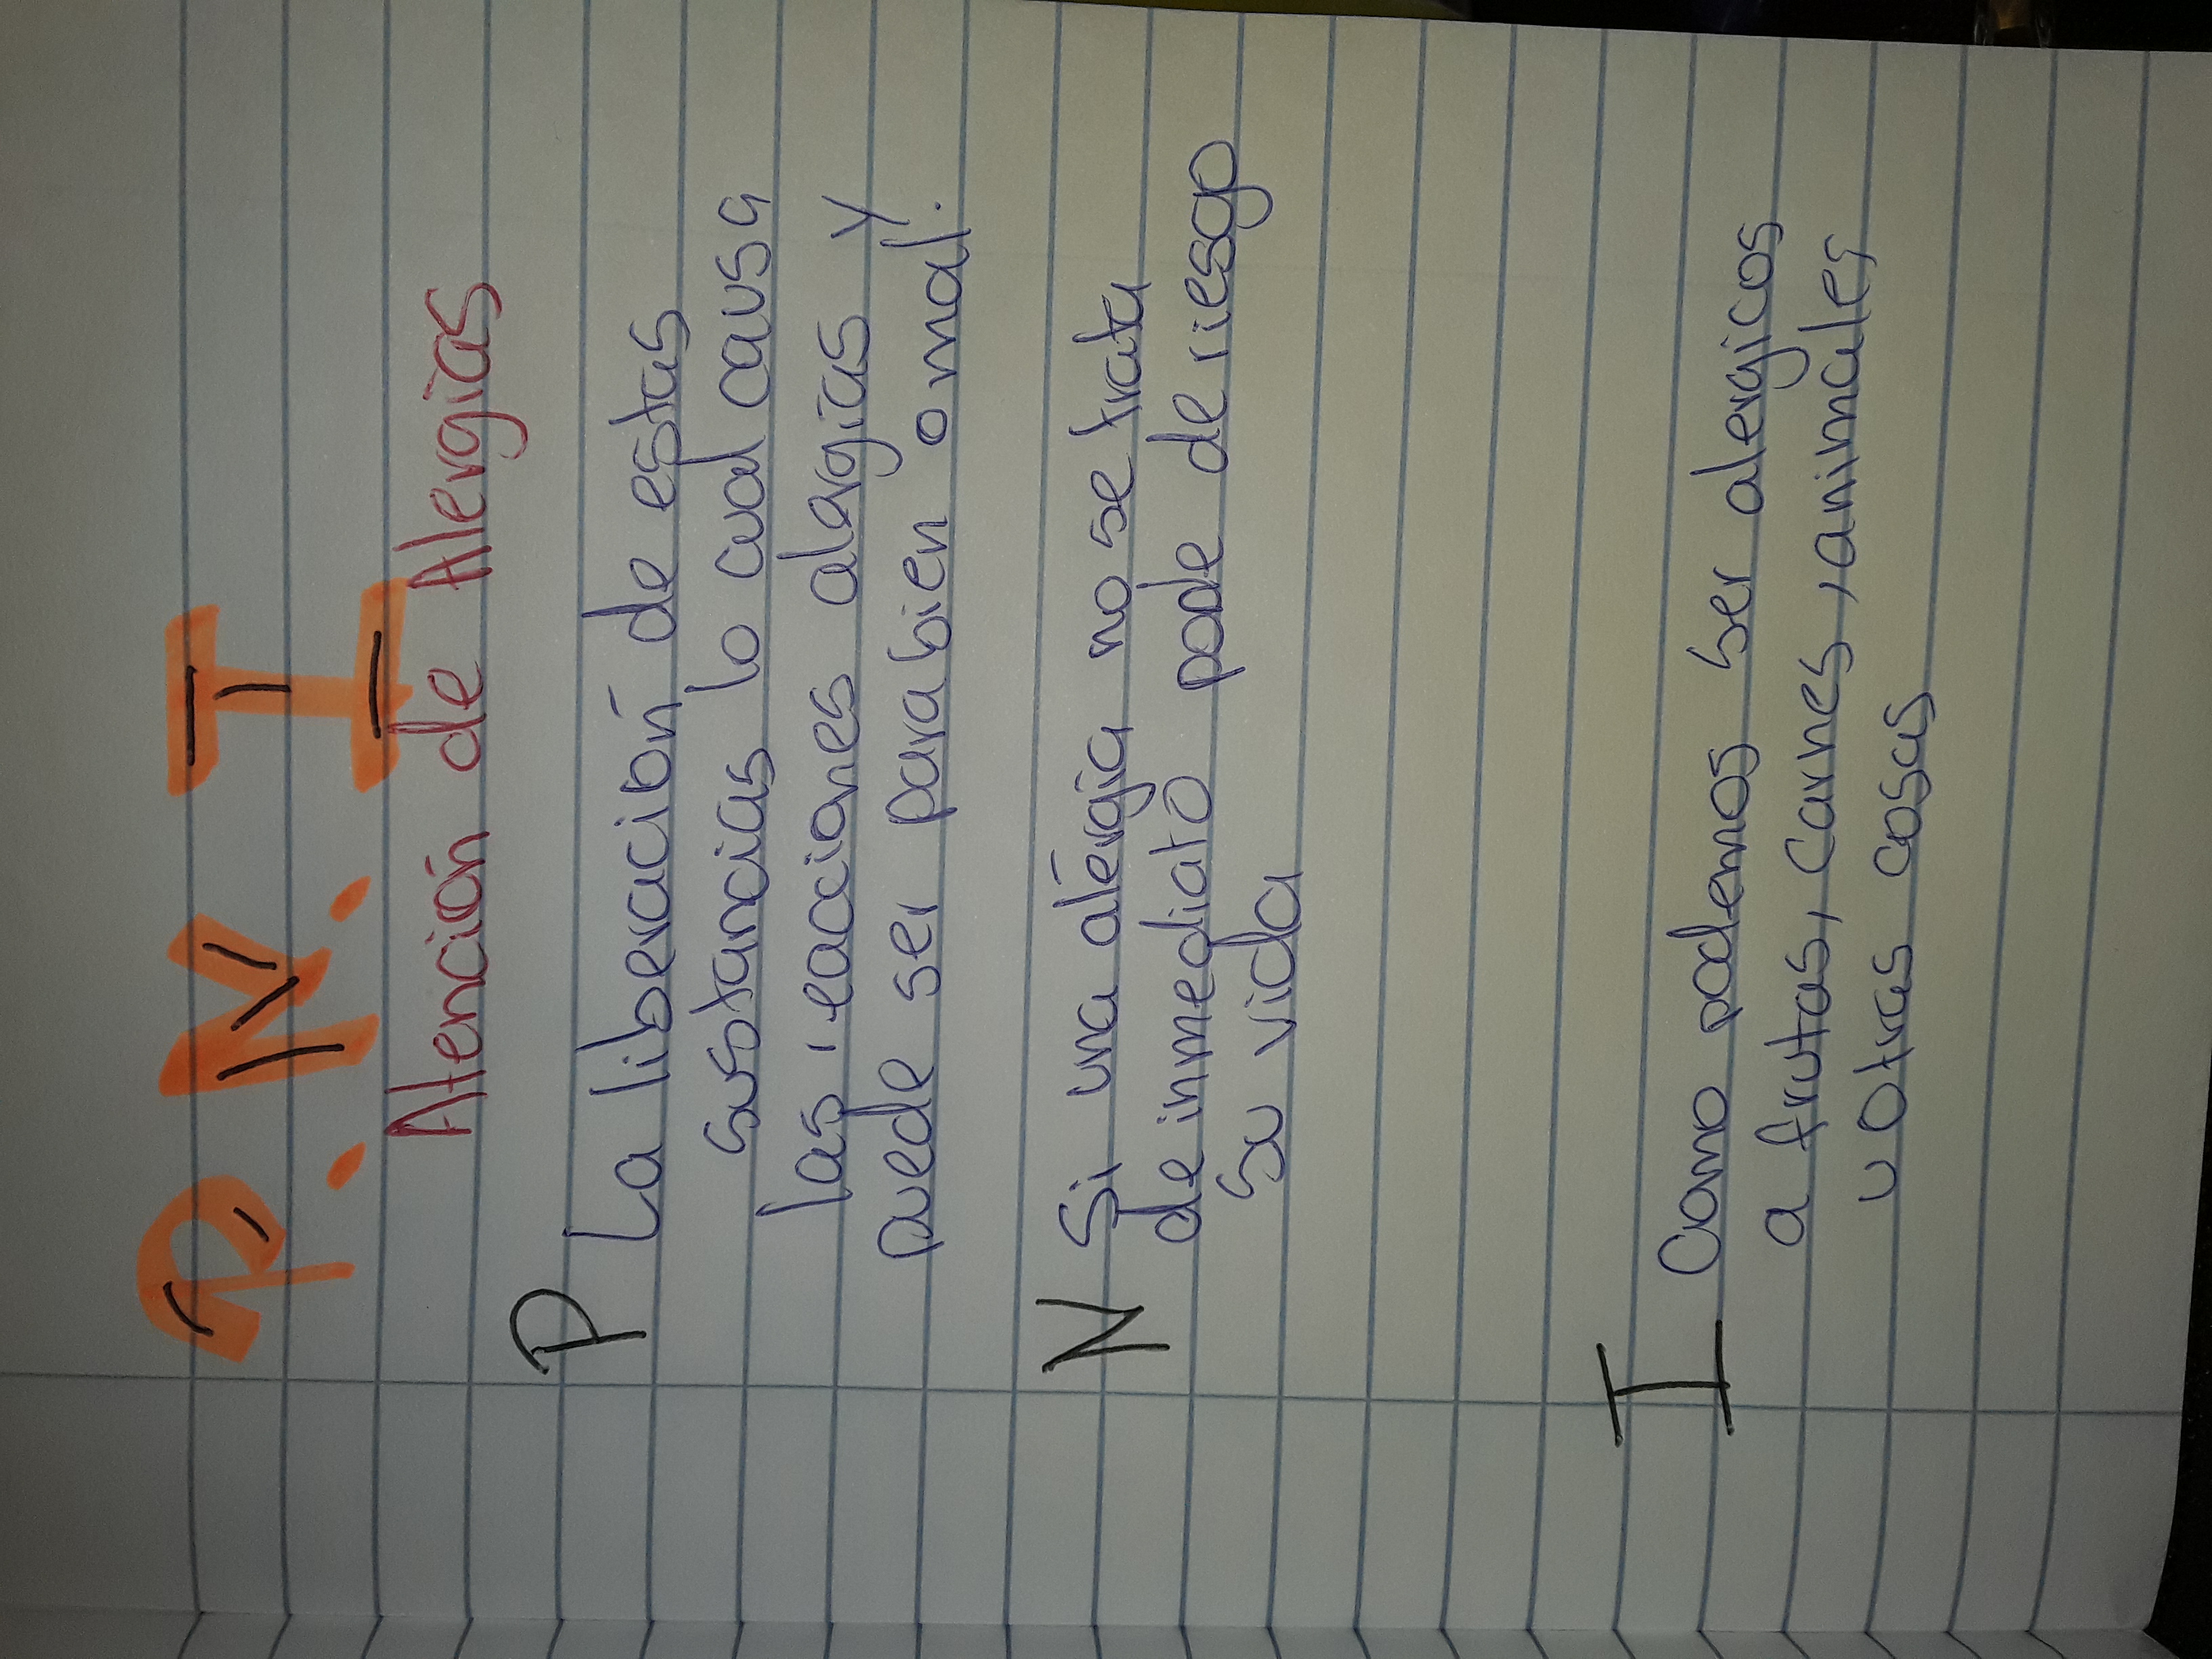 P.N.I
Atención de Alergias
P La liberación de estas
sustancias lo cual causa
las reacciones alergias y
puede ser para bien o mal.
N Si una alérgia no se trata
de inmediato pode de riesgo
su vida
I Como podemos ser alergicos
a frutas, carnes, animales,
u otras cosas